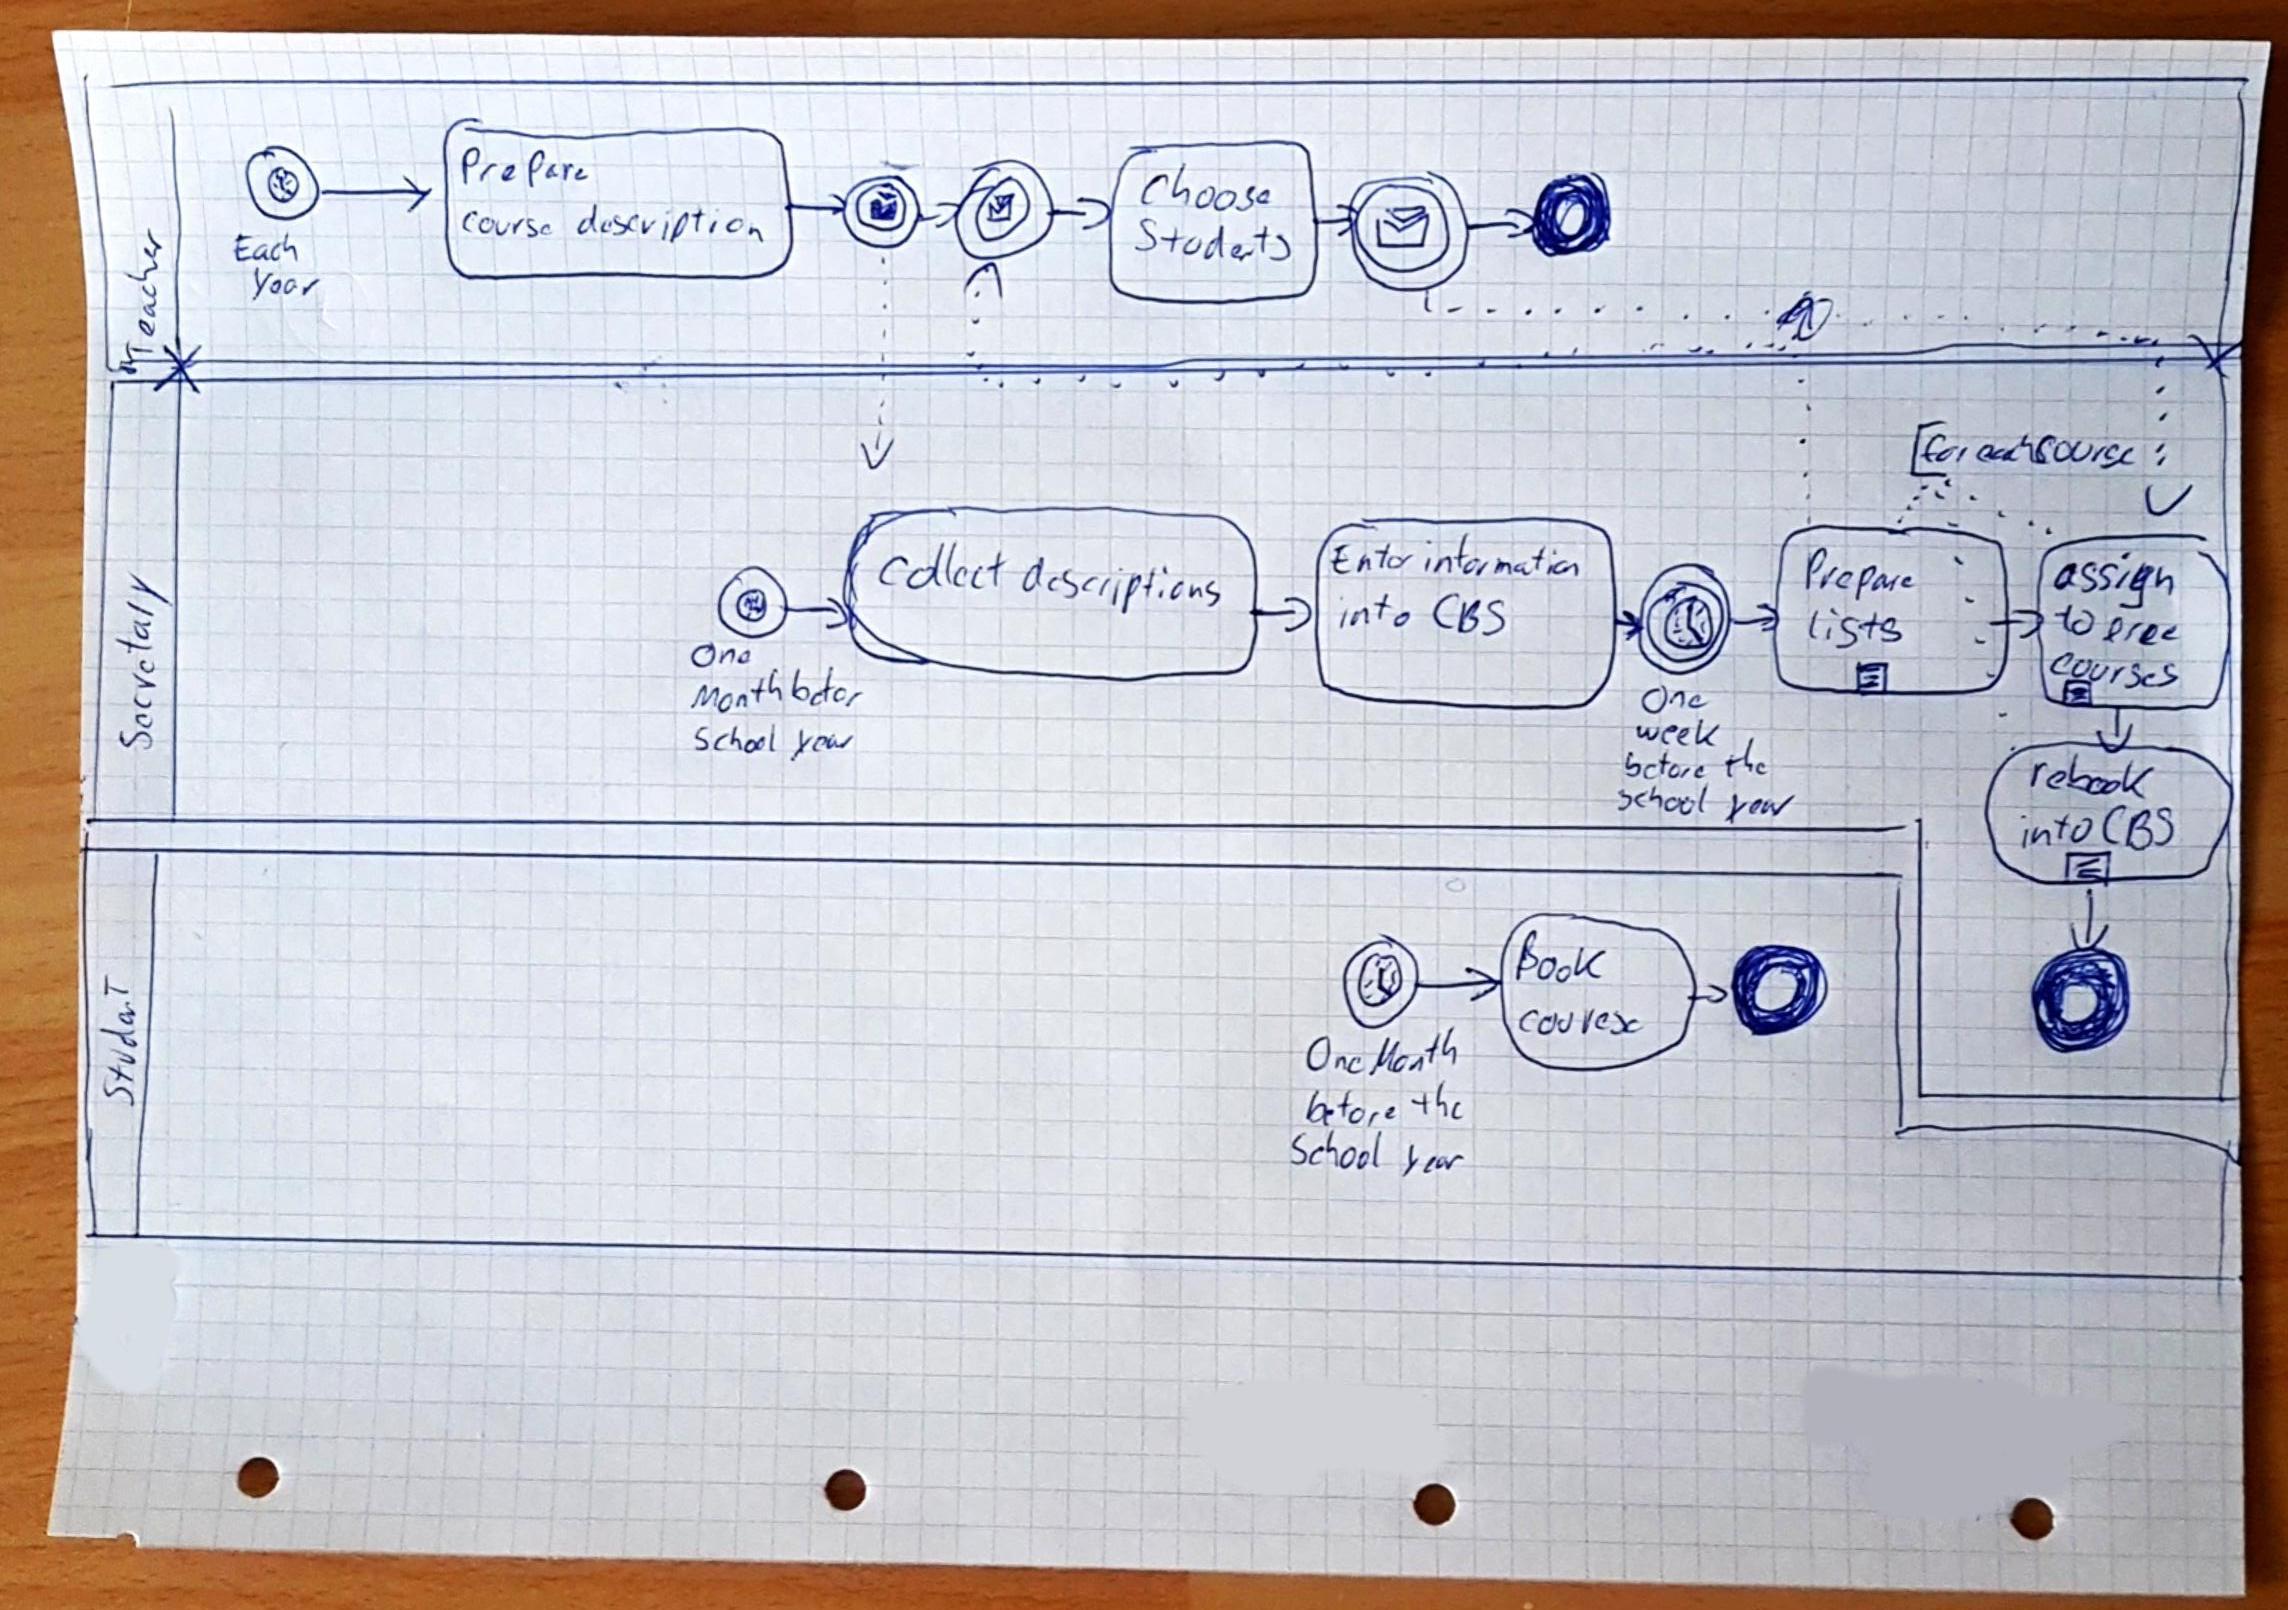 Teacher
Each
Year
Prepare
course description
Choose
Students
Secretaly
One
Month befor
School year
Collect descriptions
Enter information
into CBS
One
week
before the
school year
[for each course
Prepare
lists
assign
to free
courses
rebook
into CBS
Student
One Month
before the
School year
Book
course